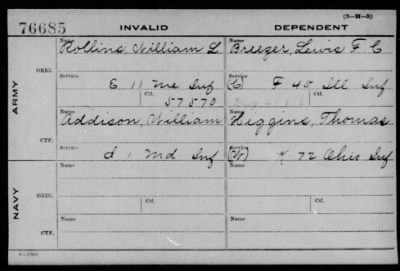 (3-H-5)
76685 INVALID DEPENDENT
Name Name
Rollins, William L Breezer, Lewis F C
ARMY
ORIG.
Service Service
E 11 Me Inf (C) F 45 Ill Inf
Ctf. Ctf.
57570
Name Name
Addison, William Higgins, Thomas
CTF.
Service Service
d 1 Md Inf (W) K 72 Ohio Inf
NAVY
Name Name
ORIG.
Service Service
Ctf. Ctf.
Name Name
CTF.
Service Service